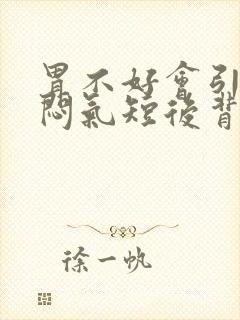 胃不好會引
悶氣短後背
徐一帆